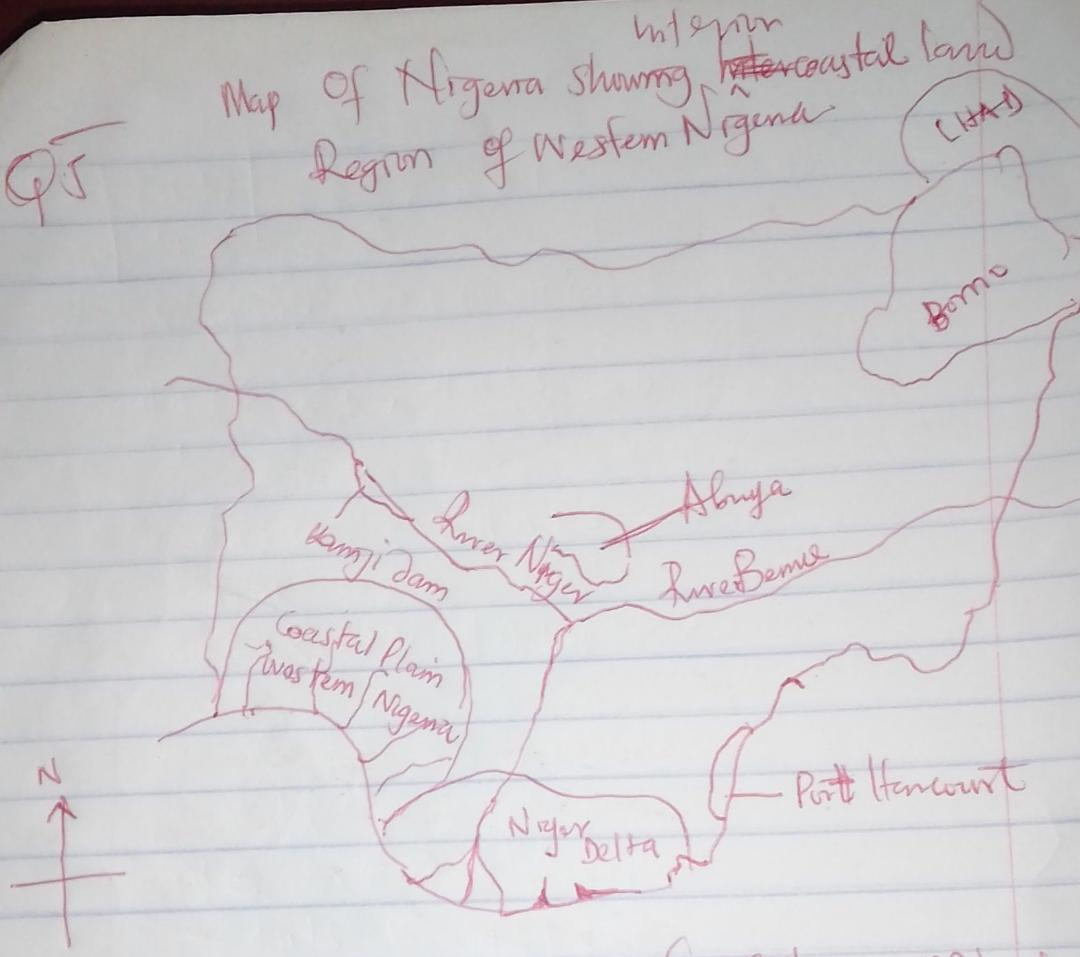 Interior
Map Of Nigeria showing coastal land
Region of Western Nigeria
Q5
CHAD
Borno
Abuja
River Niger
Kanji Dam
River Benue
Coastal Plain
Western Nigeria
N
Port Harcourt
Niger Delta